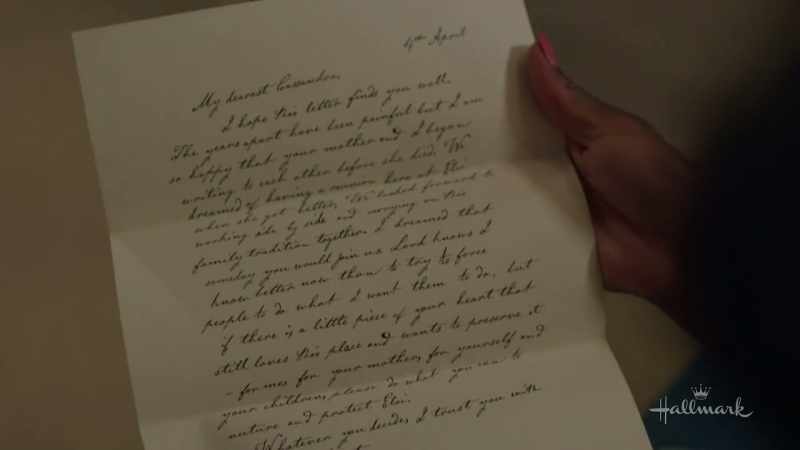 4th April
My dearest Cassandra,
I hope this letter finds you well.
The years apart have been painful but I am
so happy that your mother and I began
writing to each other before she died. We
dreamed of having a reunion here at Eloi
when she got better. We looked forward to
working side by side and carrying on this
family tradition together. I dreamed that
someday you would join us. Lord knows I
know better now than to try to force
people to do what I want them to do, but
if there is a little piece of your heart that
still loves this place and wants to preserve it
- for me, for your mother, for yourself and
your children, please do what you can to
nurture and protect Eloi.
Whatever you decide, I trust you with
Hallmark